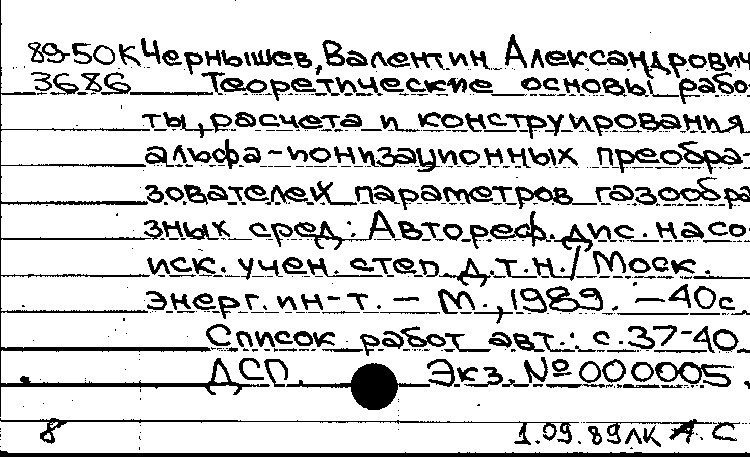 89-50К Чернышев, Валентин Александрович
3686 Теоретические основы рабо-
ты, расчета и конструирования
альфа-ионизационных преобра-
зователей параметров газообра
зных сред: Автореф. дис. на со
иск. учен. степ. д.т.н./ Моск.
энерг. ин-т. – М., 1989. – 40с.
Список работ авт.: с.37-40
ДСП. Экз. № 000005.
8 1.09.89 ЛК А.С